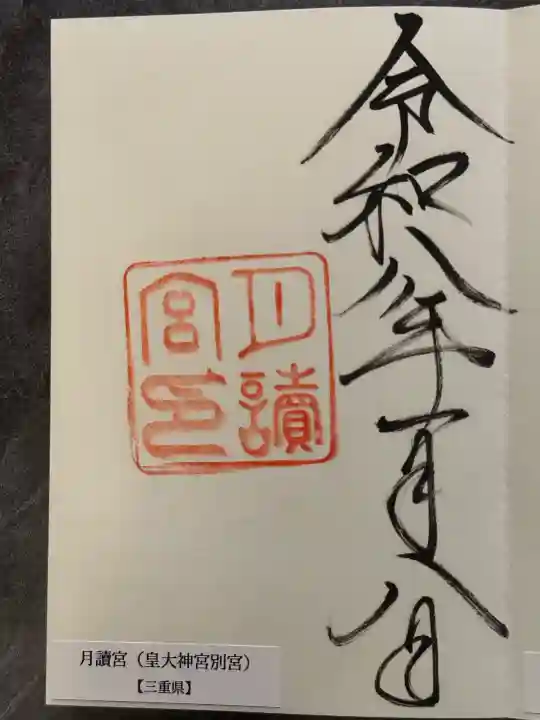 令和八年一月八日
月讀
宮印
月讀宮（皇大神宮別宮）
【三重県】